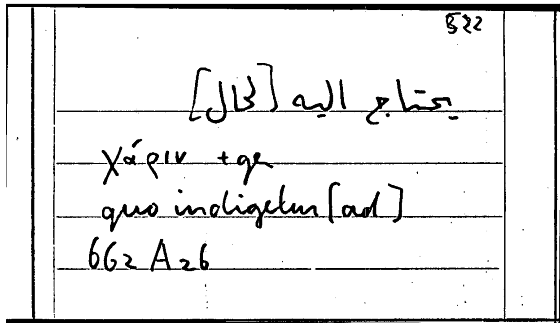 522
يحتاج اليه [لحال]
χάριν + ge
quo indigetur [ad]
662 A 26